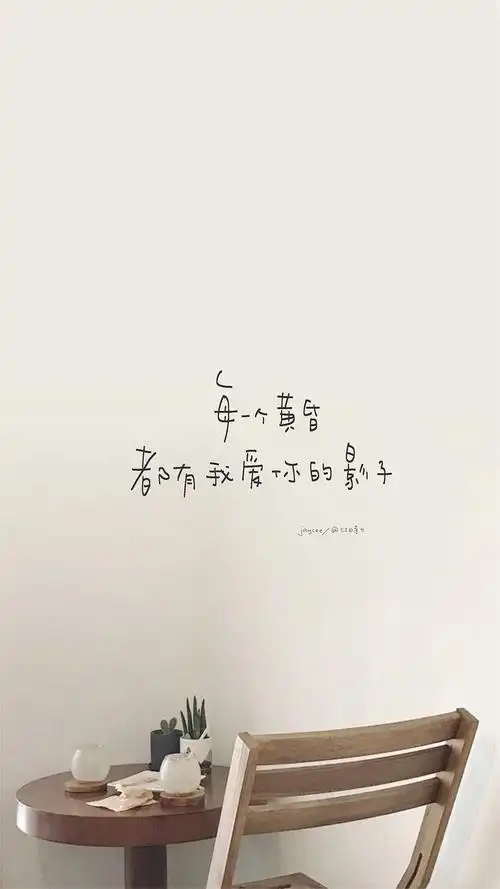 每一个黄昏
都有我爱你的影子